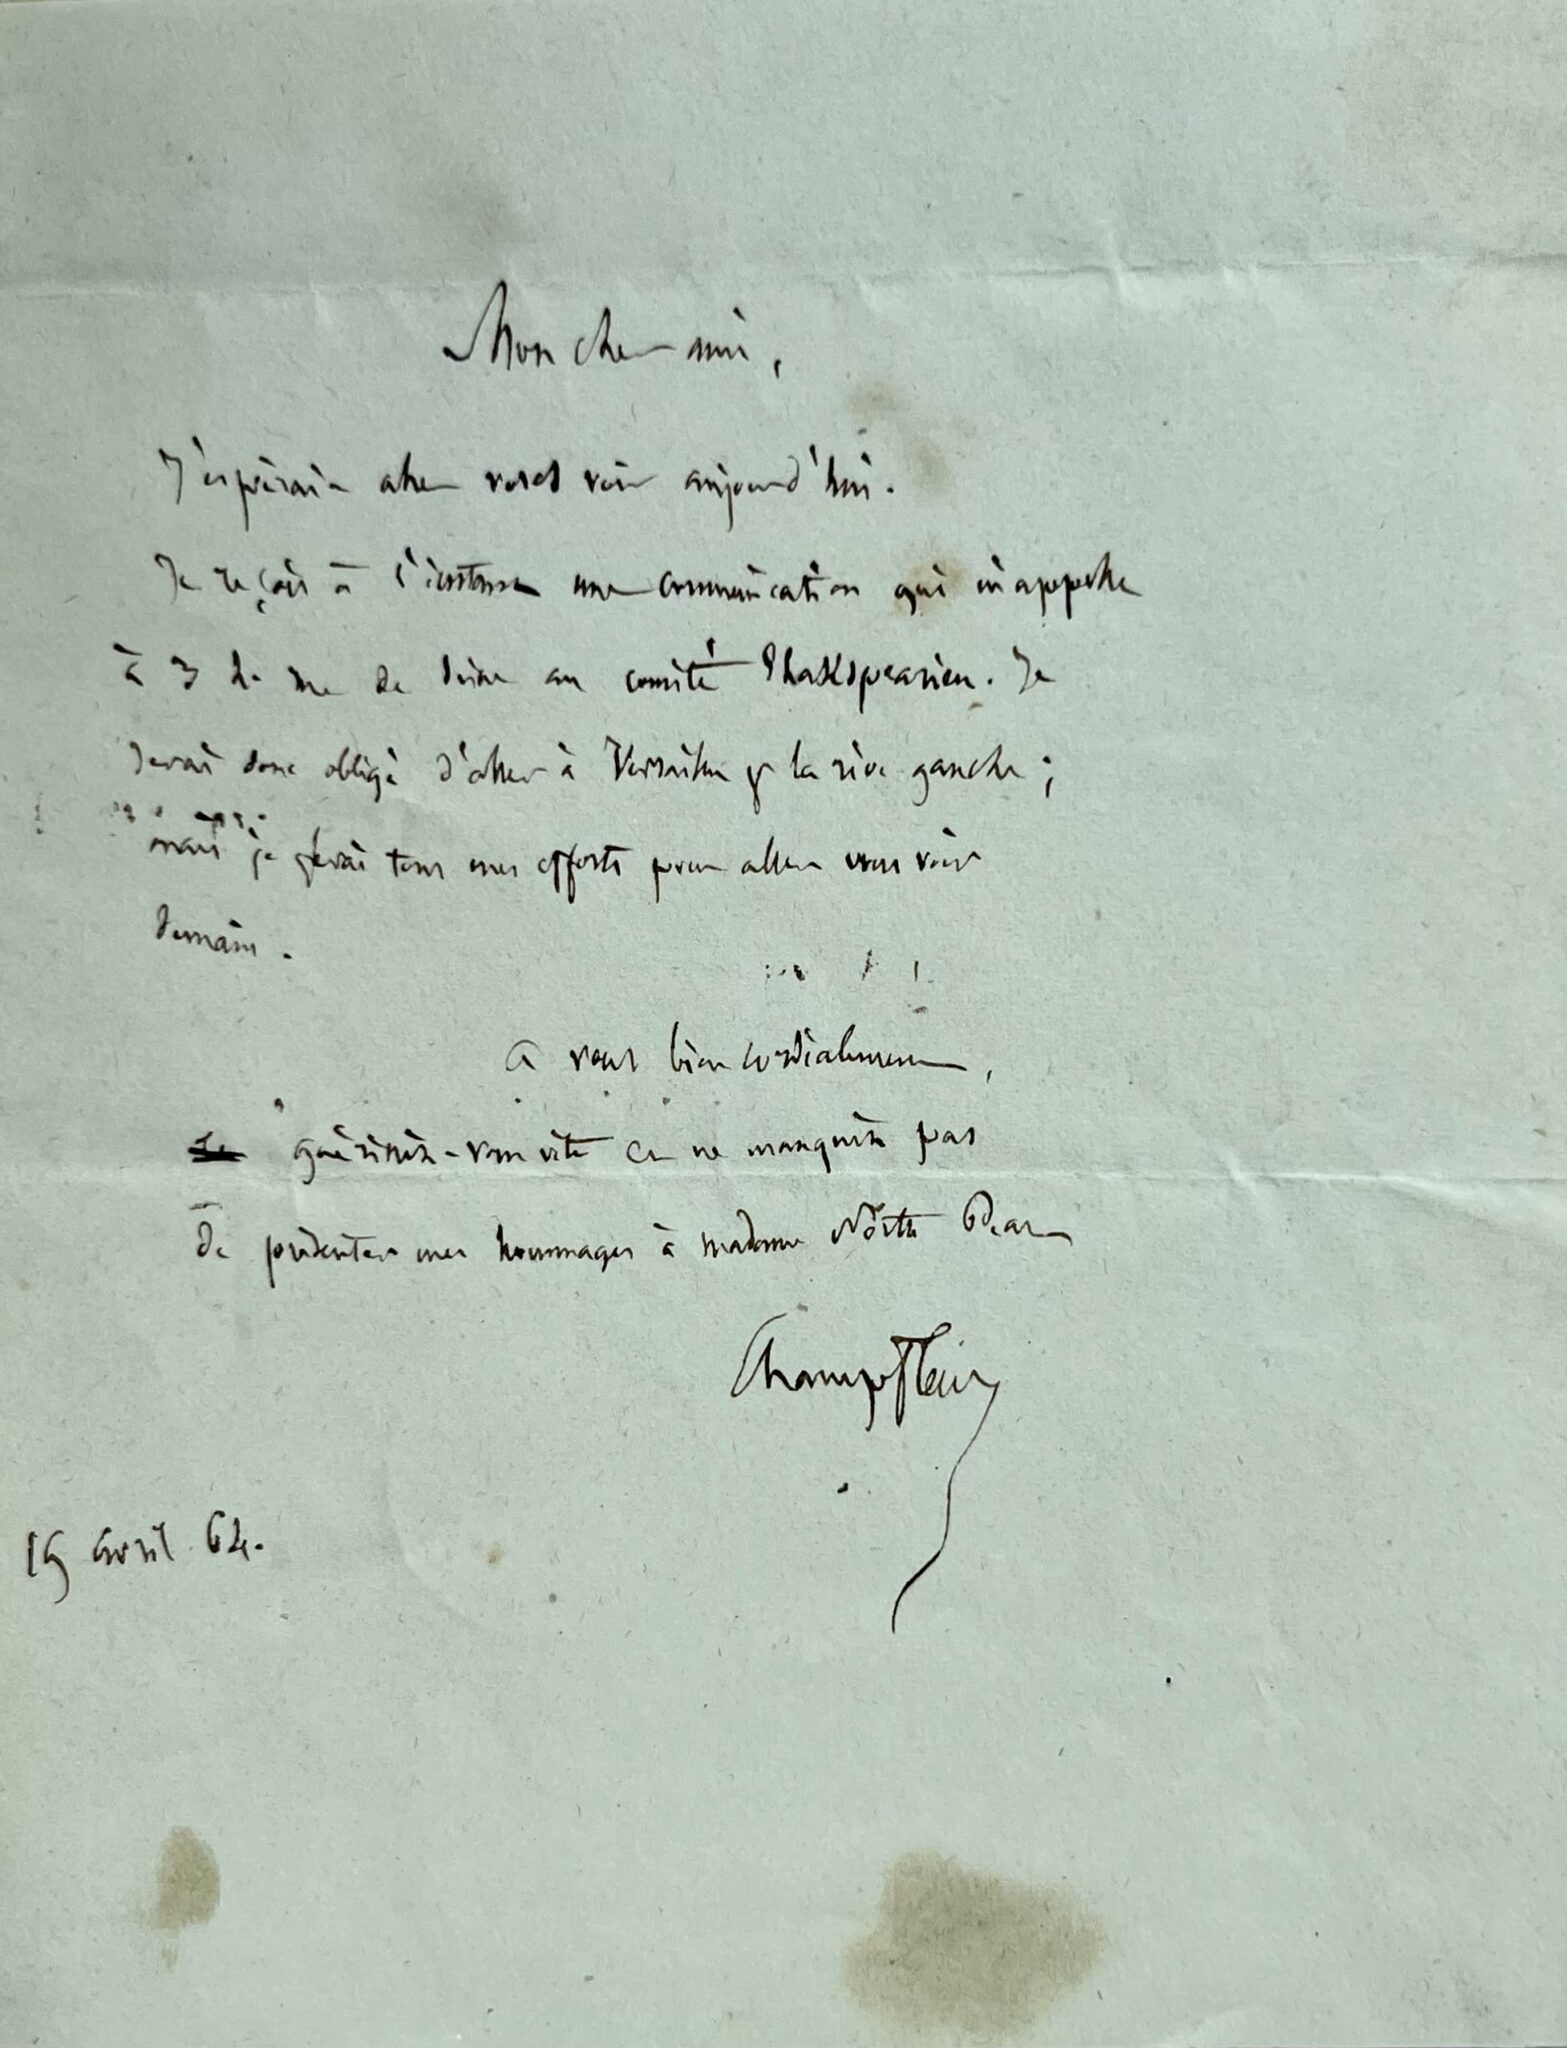 Mon cher ami,
J'espérais aller vous voir aujourd'hui.
Je reçois à l'instant une communication qui m'appelle
à 3 h. me de Seine au comité Shakspearien. Je
serai donc obligé d'aller à Versailles p. la rive gauche;
mais je ferai tous mes efforts pour aller vous voir
demain.
à vous bien cordialement,
guérissez-vous vite et ne manquez pas
de présenter mes hommages à madame North Peat
Champfleury
19 avril 64.